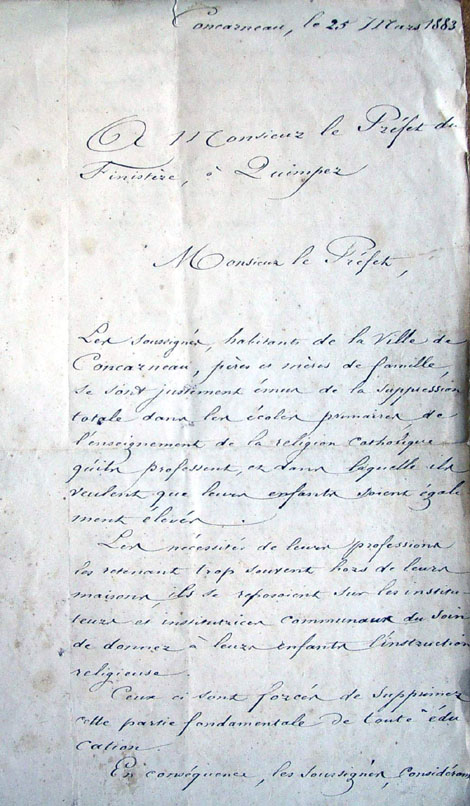 Concarneau, le 25 Mars 1883
A Monsieur le Préfet du
Finistère, à Quimper
Monsieur le Préfet,
Les soussignés, habitants de la Ville de
Concarneau, pères et mères de famille,
se sont justement émus de la suppression
totale dans les écoles primaires de
l'enseignement de la religion catholique
qu'ils professent, et dans laquelle ils
veulent que leurs enfants soient égale
ment élevés.
Les nécessités de leurs professions
les retenant trop souvent hors de leurs
maisons, ils se reposaient sur les institu-
teurs et institutrices communaux du soin
de donner à leurs enfants l'instruction
religieuse.
Ceux ci sont forcés de supprimer
cette partie fondamentale de toute édu
cation.
En conséquence, les soussignés, considérant